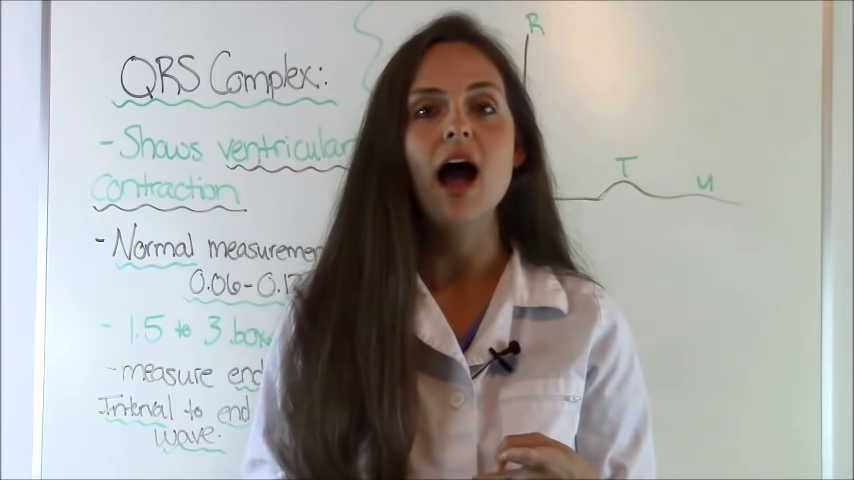 QRS Complex:
- Shows ventricular
Contraction
- Normal
0.06-
- 1.5 to 3
- measure end
Interval to end
wave.
R
T
U